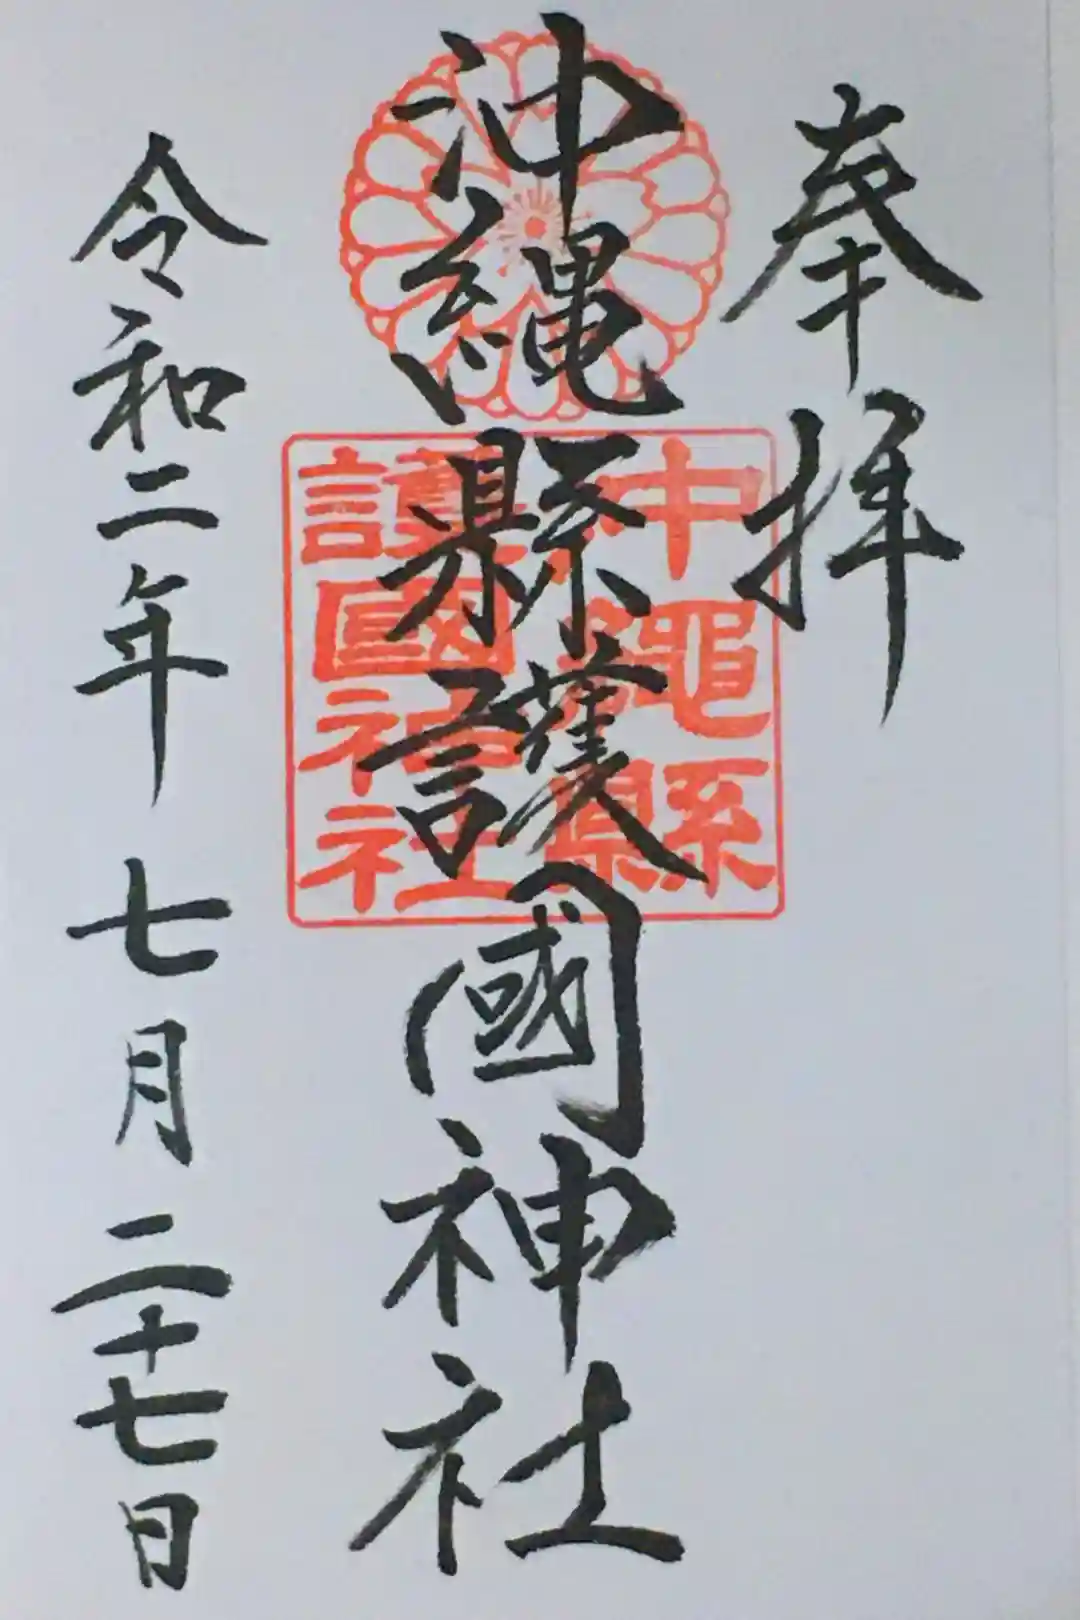 奉拝
沖縄縣護國神社
沖縄縣
護國神社
令和二年 七月二十七日